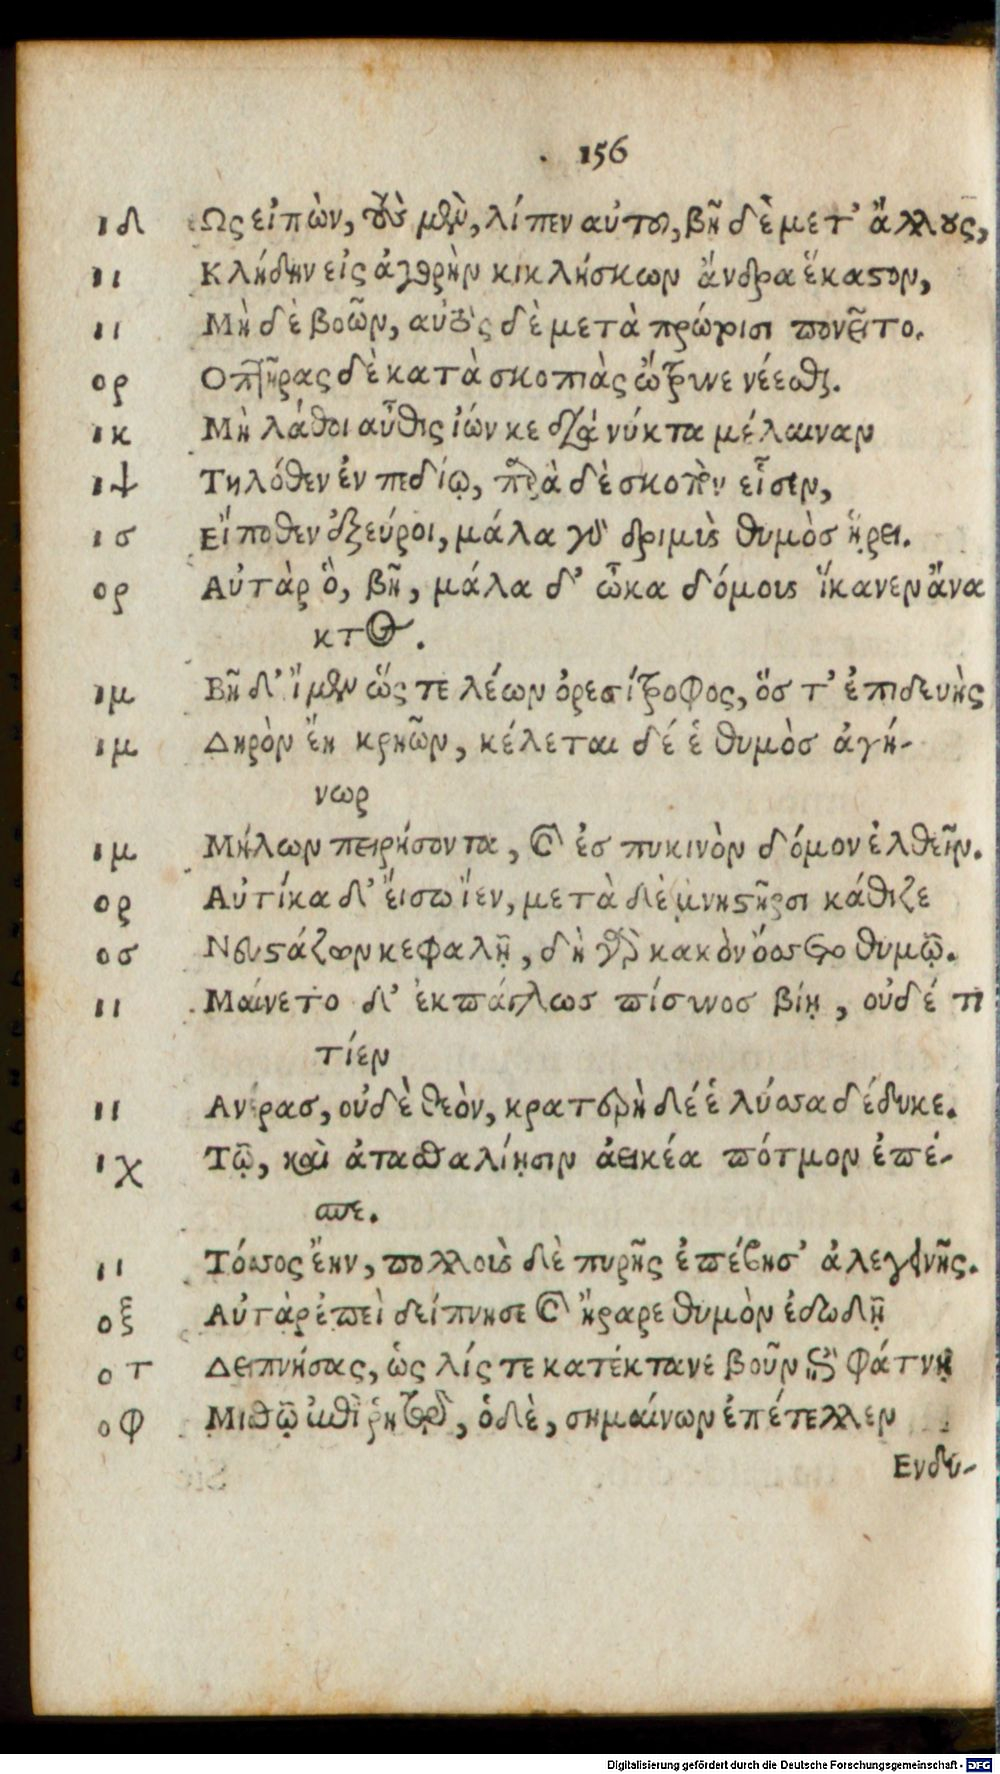 156
ιδ Ως εἰπὼν, τοὺς μὲν, λίπεν αὐτοῦ, βῆ δὲ μετ' ἄλλους,
ιι Κλήδην εἰς ἀγορὴν κικλήσκων ἄνδρα ἕκαστον,
ιι Μὴ δὲ βοῶν, αὐτὸς δὲ μετὰ πρώτοισι πονεῖτο.
ορ Οπτῆρας δὲ κατὰ σκοπιὰς ὤτρυνε νέεσθαι.
ικ Μὴ λάθοι αὖθις ἰών κε διὰ νύκτα μέλαιναν
ιψ Τηλόθεν ἐν πεδίῳ, παρὰ δὲ σκοπὸν εἷσεν,
ισ Εἴ ποθεν ἐξεύροι, μάλα γὰρ δριμὺς θυμὸς ᾕρει.
ορ Αὐτὰρ ὃ, βῆ, μάλα δ' ὦκα δόμους ἵκανεν ἄνα
κτος.
ιμ Βῆ δ' ἴμεν ὥς τε λέων ὀρεσίτροφος, ὅς τ' ἐπιδευὴς
ιμ Δηρὸν ἔῃ κρειῶν, κέλεται δέ ἑ θυμὸς ἀγή-
νωρ
ιμ Μήλων πειρήσοντα, καὶ ἐς πυκινὸν δόμον ἐλθεῖν.
ορ Αὐτίκα δ' ἔισω ἴεν, μετὰ δὲ μνηστῆρσι κάθιζε
οσ Νευστάζων κεφαλῇ, δὴ γὰρ κακὸν ὄσσετο θυμῷ.
ιι Μαίνετο δ' ἐκπάγλως πίσυνος βίῃ, οὐδέ τι
τίεν
ιι Ανέρας, οὐδὲ θεὸν, κρατερὴ δέ ἑ λύσσα δέδυκε.
ιχ Τῷ, καὶ ἀτασθαλίῃσιν ἀεικέα πότμον ἐπέ-
σπε.
ιι Τόσσος ἔην, πολλοὺς δὲ πυρῆς ἐπέβησ' ἀλεγεινῆς.
οξ Αὐτὰρ ἐπεὶ δείπνησε καὶ ἤραρε θυμὸν ἐδωδῇ
οτ Δειπνήσας, ὡς λίς τε κατέκτανε βοῦν ἐπὶ φάτνῃ
οφ Μισθῷ ἐπὶ ῥητῷ, ὁ δὲ, σημαίνων ἐπέτελλεν
Ενδυ-
Digitalisierung gefördert durch die Deutsche Forschungsgemeinschaft - DFG